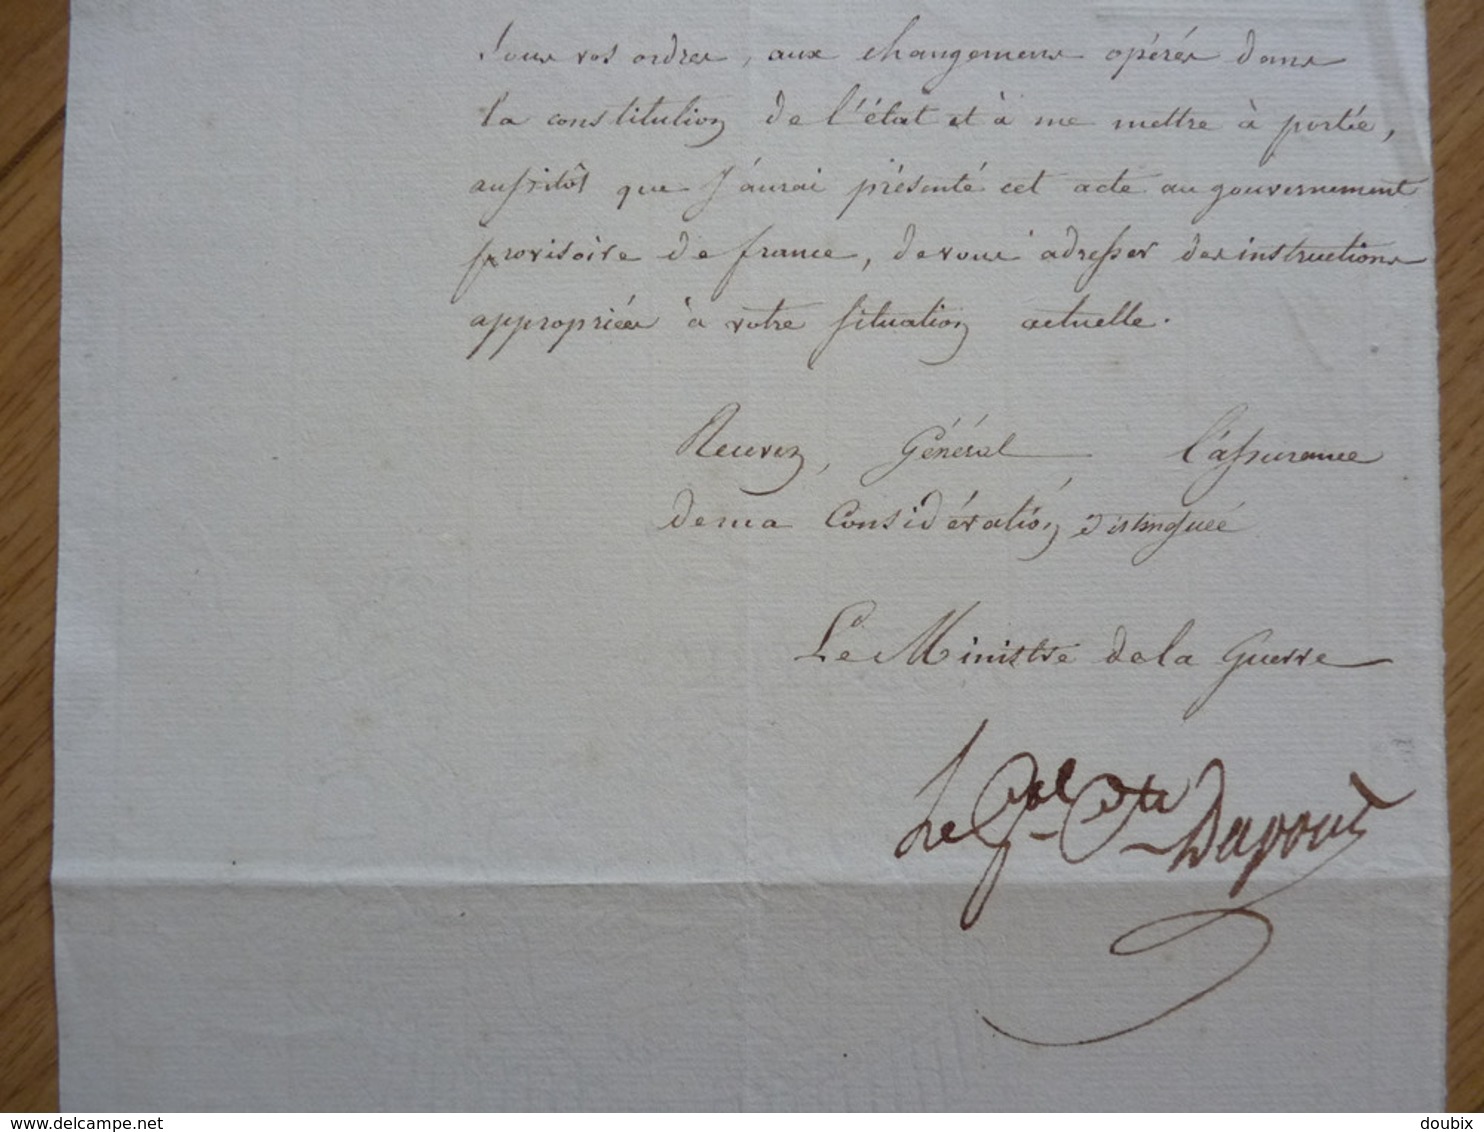 sous vos ordres, aux changemens opérés dans
la constitution de l'état et à me mettre à portée,
aussitôt que j'aurai présenté cet acte au gouvernement
provisoire de france, de vous adresser des instructions
appropriées à votre situation actuelle.
Recevez, Général l'assurance
de ma Considération distinguée
Le Ministre de la Guerre
Le Gal Cte Dupont
delcampe.net
doubix